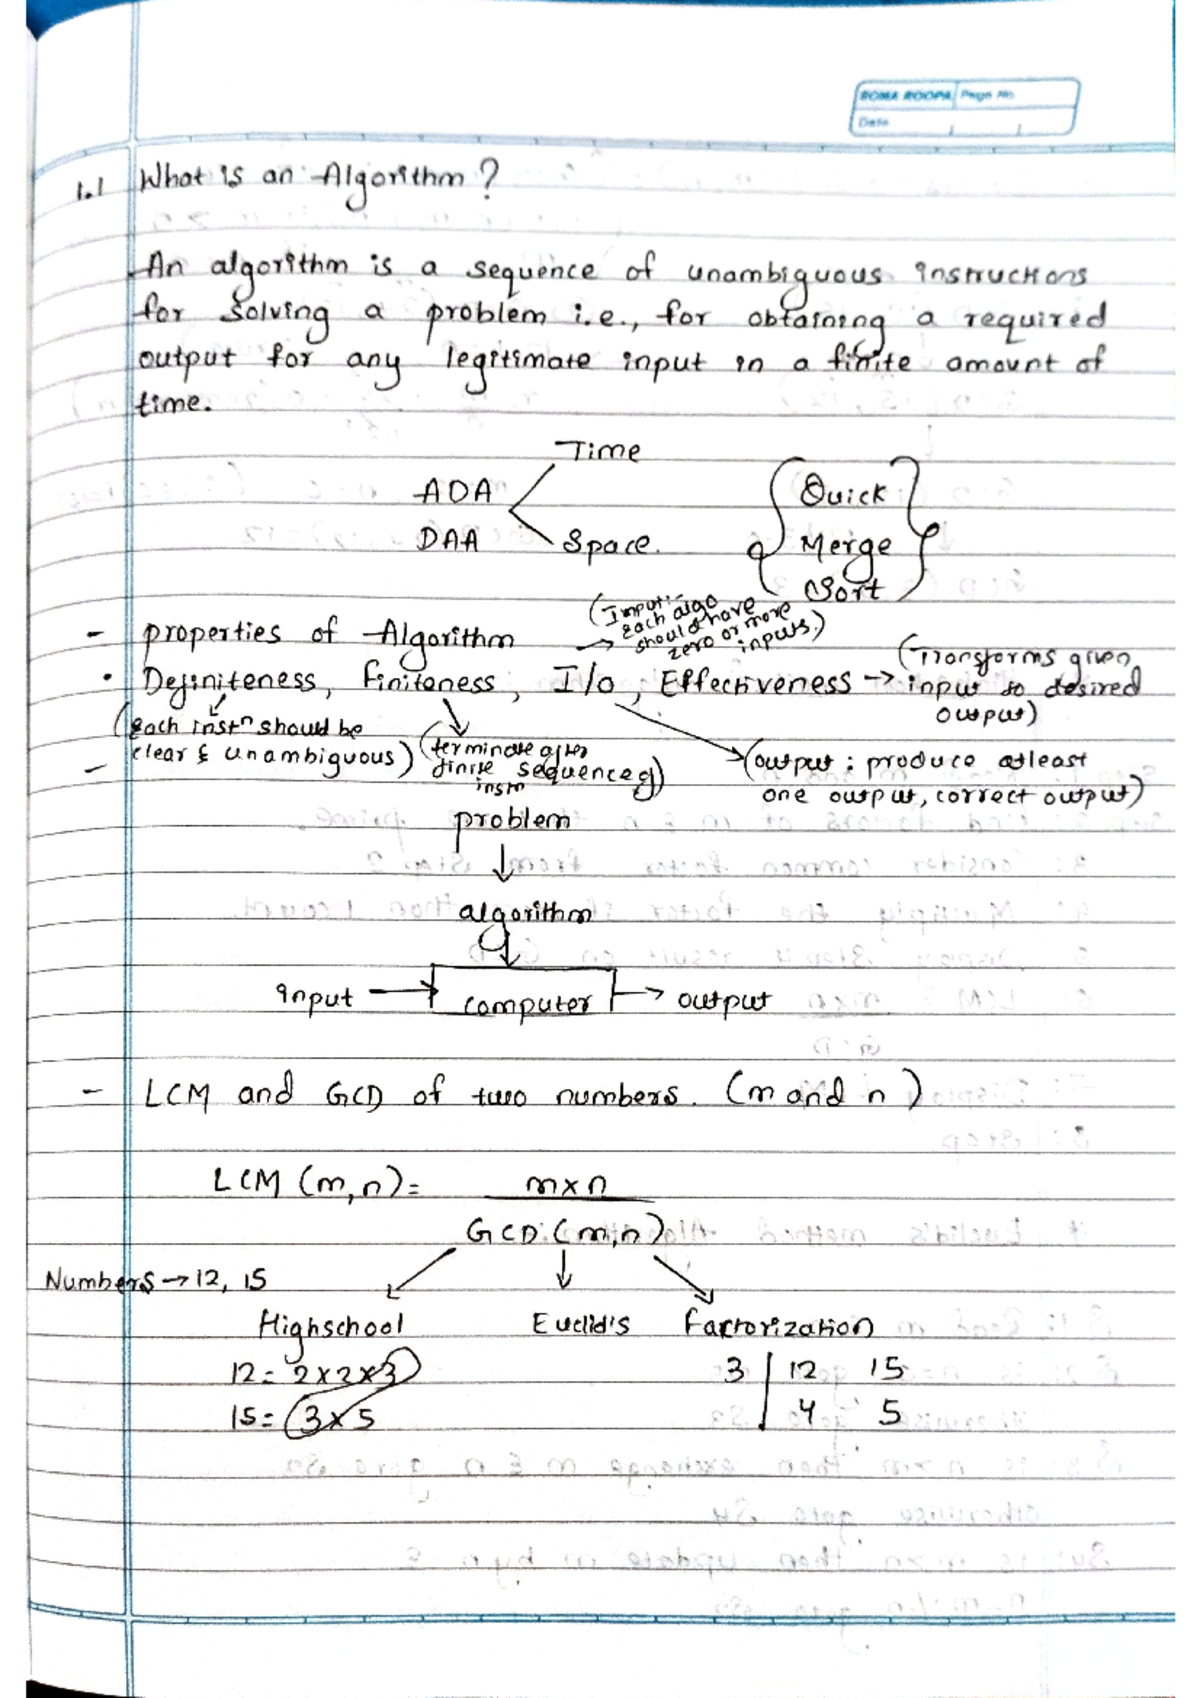 ROMA ROOPA Page No.
Date
1.1 What is an Algorithm?
An algorithm is a sequence of unambiguous instructions
for solving a problem i.e., for obtaining a required
output for any legitimate input in a finite amount of
time.
Time
ADA
DAA
Space.
Quick
Merge
Sort
(Input:-
each algo
should have
zero or more
inputs.)
- properties of Algorithm
• Definiteness, Finiteness, I/o, Effectiveness → (Transforms given
input to desired
output)
(each instⁿ should be
clear & unambiguous)
(terminate after
finite sequence of)
instⁿ
(output ; produce atleast
one output, correct output)
-
problem
algorithm
input → computer → output
- LCM and GCD of two numbers. (m and n)
LCM (m,n) = m×n
GCD (m,n)
Numbers → 12, 15
Highschool Euclid's Factorization
12 = 2×2×3 3 | 12 15
15 = 3×5 4 5